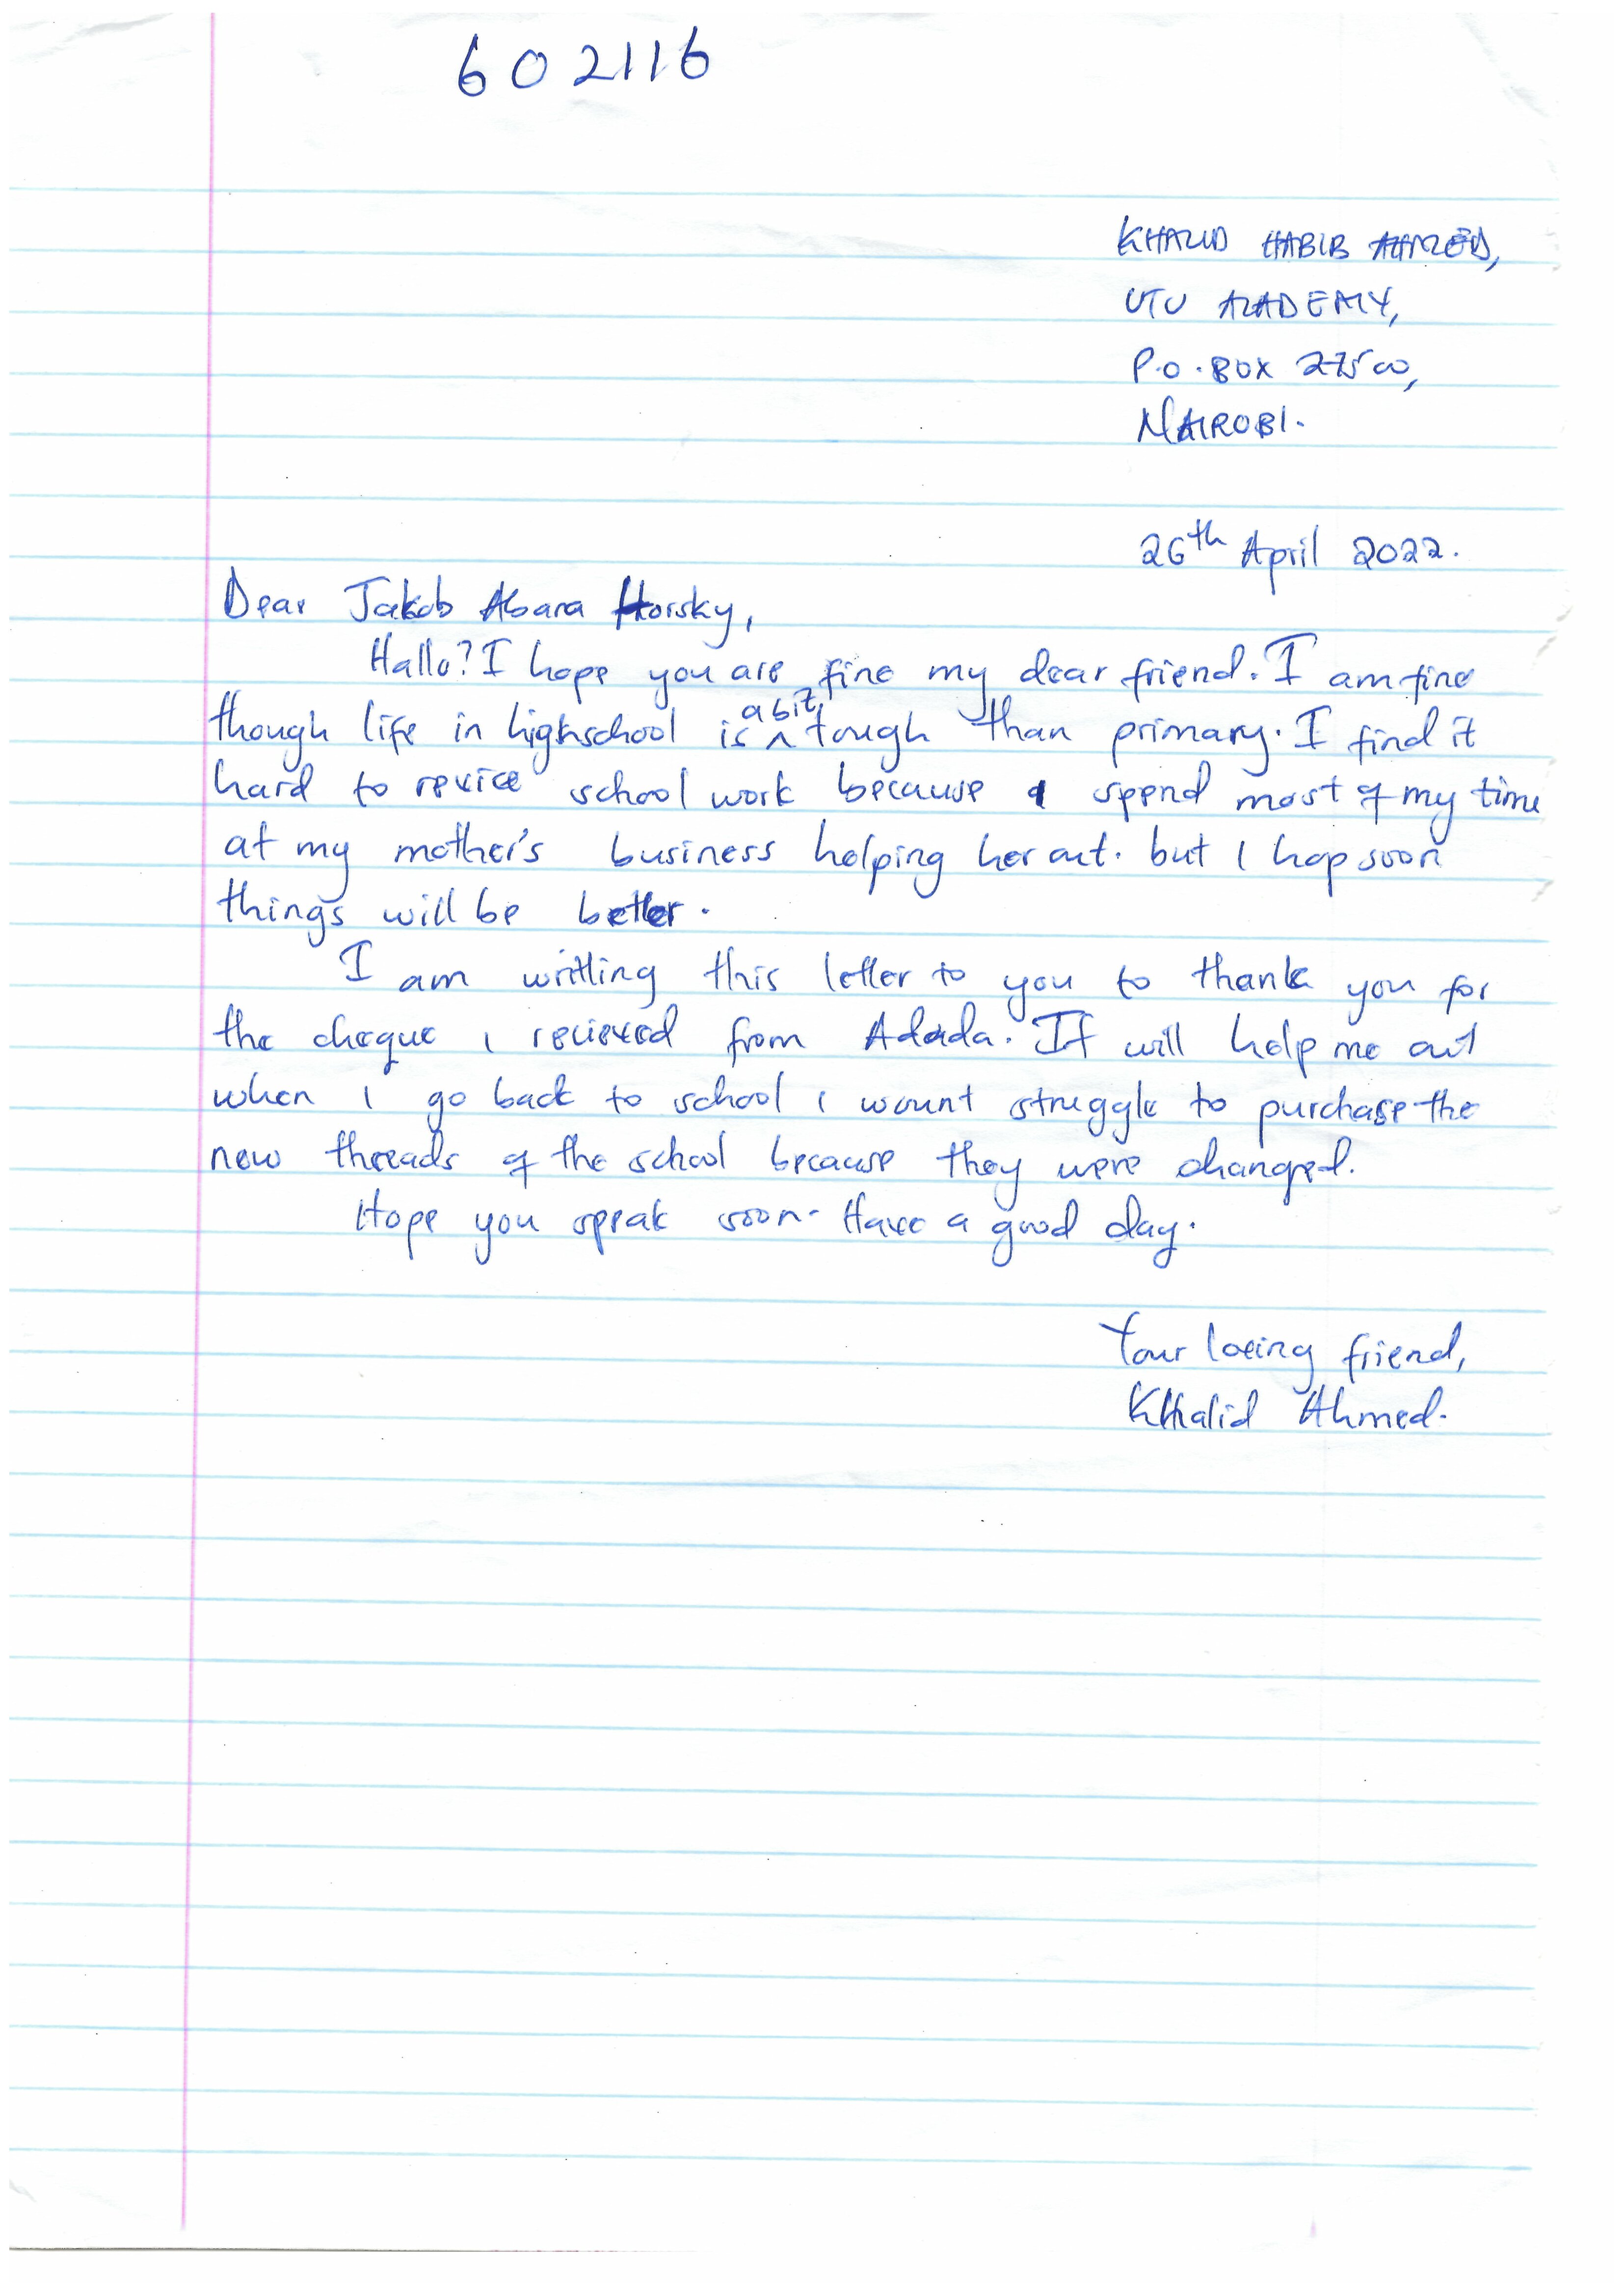 602116
KHALID HABIB AHMED,
UTU ACADEMY,
P.O. BOX 27500,
NAIROBI.
26th April 2022.
Dear Jakob Abara Horsky,
Hallo? I hope you are fine my dear friend. I am fine
though life in highschool is a bit tough than primary. I find it
hard to revice school work because I spend most of my time
at my mother's business helping her out. but I hop soon
things will be better.
I am writting this letter to you to thank you for
the cheque i recieved from Adada. It will help me out
when I go back to school i wount struggle to purchase the
new threads of the school because they were changed.
Hope you speak soon. Have a good day.
Your loving friend,
Khalid Ahmed.